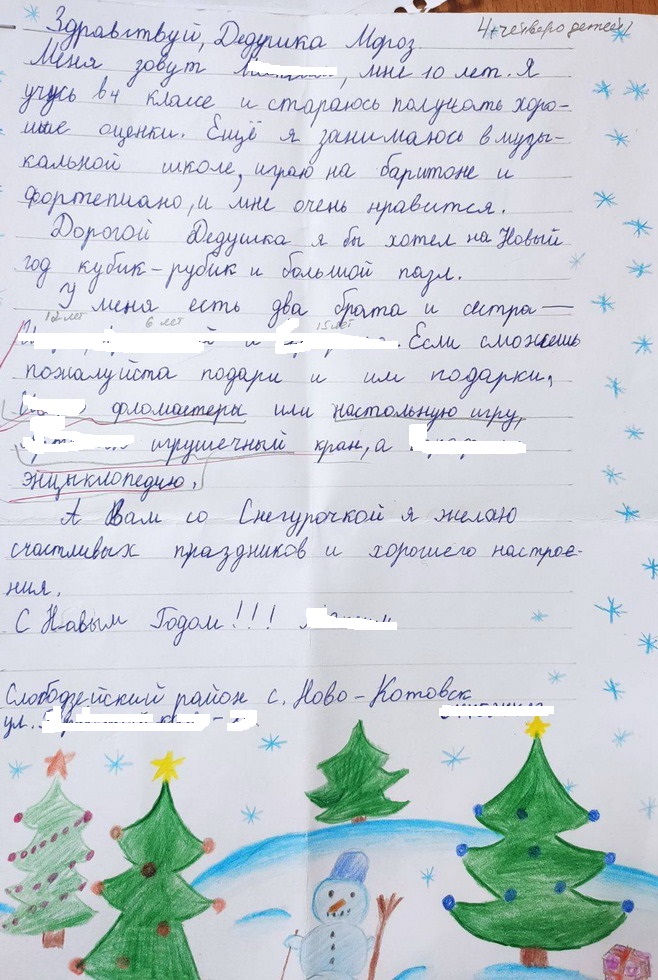 4. четверо детей
Здравствуй, Дедушка Мороз
Меня зовут , мне 10 лет. Я
учусь в 4 классе и стараюсь получать хоро-
шие оценки. Ещё я занимаюсь в музы-
кальной школе, играю на баритоне и
фортепиано, и мне очень нравится.
Дорогой Дедушка я бы хотел на Новый
год кубик-рубик и большой пазл.
У меня есть два брата и сестра —
12 лет 6 лет 15 лет
и . Если сможешь
пожалуйста подари и им подарки,
фломастеры или настольную игру,
игрушечный кран, а
энцыклопедию.
А Вам со Снегурочкой я желаю
счастливых праздников и хорошего настрое-
ния.
С Новым Годом!!!
Слободзейский район с. Ново-Котовск
ул.